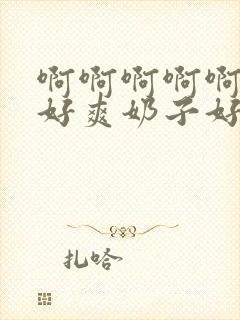 啊啊啊啊啊
好爽奶子好
扎哈